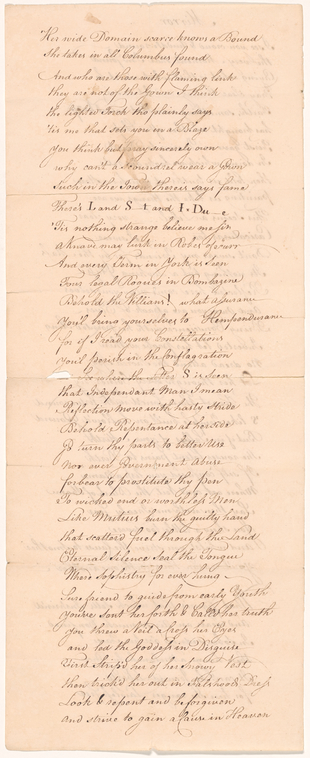 Her wide Domain scarce knows a Bound
She takes in all Columbus found
And who are those with flaming link
they are not of the Gown I think
the lighted Torch tho plainly says
tis me that sets you in a Blaze
you think but pray sincerely own
why can't a Scoundrel wear a Gown
Such in the Town there is says fame
There's L and S t and J. Du e
Tis nothing strange believe me Sir
a knave may lurk in Robes of
And every Term in York is seen
Four legal Rogues in Bombazene
Behold the Villians! what assurance
You'll bring yourselves to Hempendurance
for if I read your Constellations
you'll perish in the Conflagration
the S is seen
that Independant Man I mean
Reflection move with hasty Stride
Behold Repentance at her side
Go turn thy parts to better Use
Nor ever Government Abuse
forbear to prostitute thy Pen
To wicked end or worthless Men
Like Mutius burn the guilty hand
that scatterd fuel through the Land
Eternal Silence Seal the Tongue
Where Sophistry for ever hung
Sure friend to guide from early Youth
you've sent her forth & Call'd her truth
You threw a Veil a cross her Eyes
and led the Goddess in Disguise
First Strip'd her of her snowy Vest
then trick'd her out in Falshoods Dress
Look to repent and be forgiven
and strive to gain a Cause in Heaven